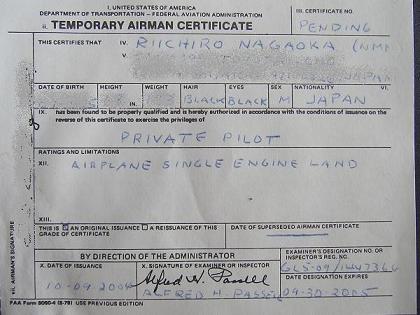 I. UNITED STATES OF AMERICA
DEPARTMENT OF TRANSPORTATION - FEDERAL AVIATION ADMINISTRATION
II. TEMPORARY AIRMAN CERTIFICATE
III. CERTIFICATE NO.
PENDING
THIS CERTIFIES THAT IV. RIICHIRO NAGAOKA (NMN
V.
JAPAN
DATE OF BIRTH HEIGHT WEIGHT HAIR EYES SEX NATIONALITY VI.
IN. BLACK BLACK M JAPAN
IX. has been found to be properly qualified and is hereby authorized in accordance with the conditions of issuance on the
reverse of this certificate to exercise the privileges of
PRIVATE PILOT
RATINGS AND LIMITATIONS
XII. AIRPLANE SINGLE ENGINE LAND
XIII.
THIS IS AN ORIGINAL ISSUANCE A REISSUANCE OF THIS
GRADE OF CERTIFICATE
DATE OF SUPERSEDED AIRMAN CERTIFICATE
BY DIRECTION OF THE ADMINISTRATOR
EXAMINER'S DESIGNATION NO. OR
INSPECTOR'S REG. NO.
X. DATE OF ISSUANCE
X. SIGNATURE OF EXAMINER OR INSPECTOR
10-09-2004
Alfred H. Passell
ALFRED H. PASSELL
DATE DESIGNATION EXPIRES
09-30-2005
VII. AIRMAN'S SIGNATURE
FAA Form 8060-4 (8-79) USE PREVIOUS EDITION